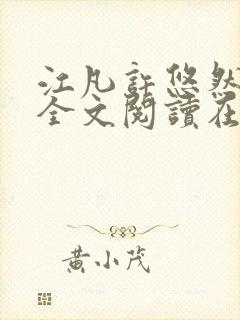 江凡許悠然
全文閱讀在
黃小茂